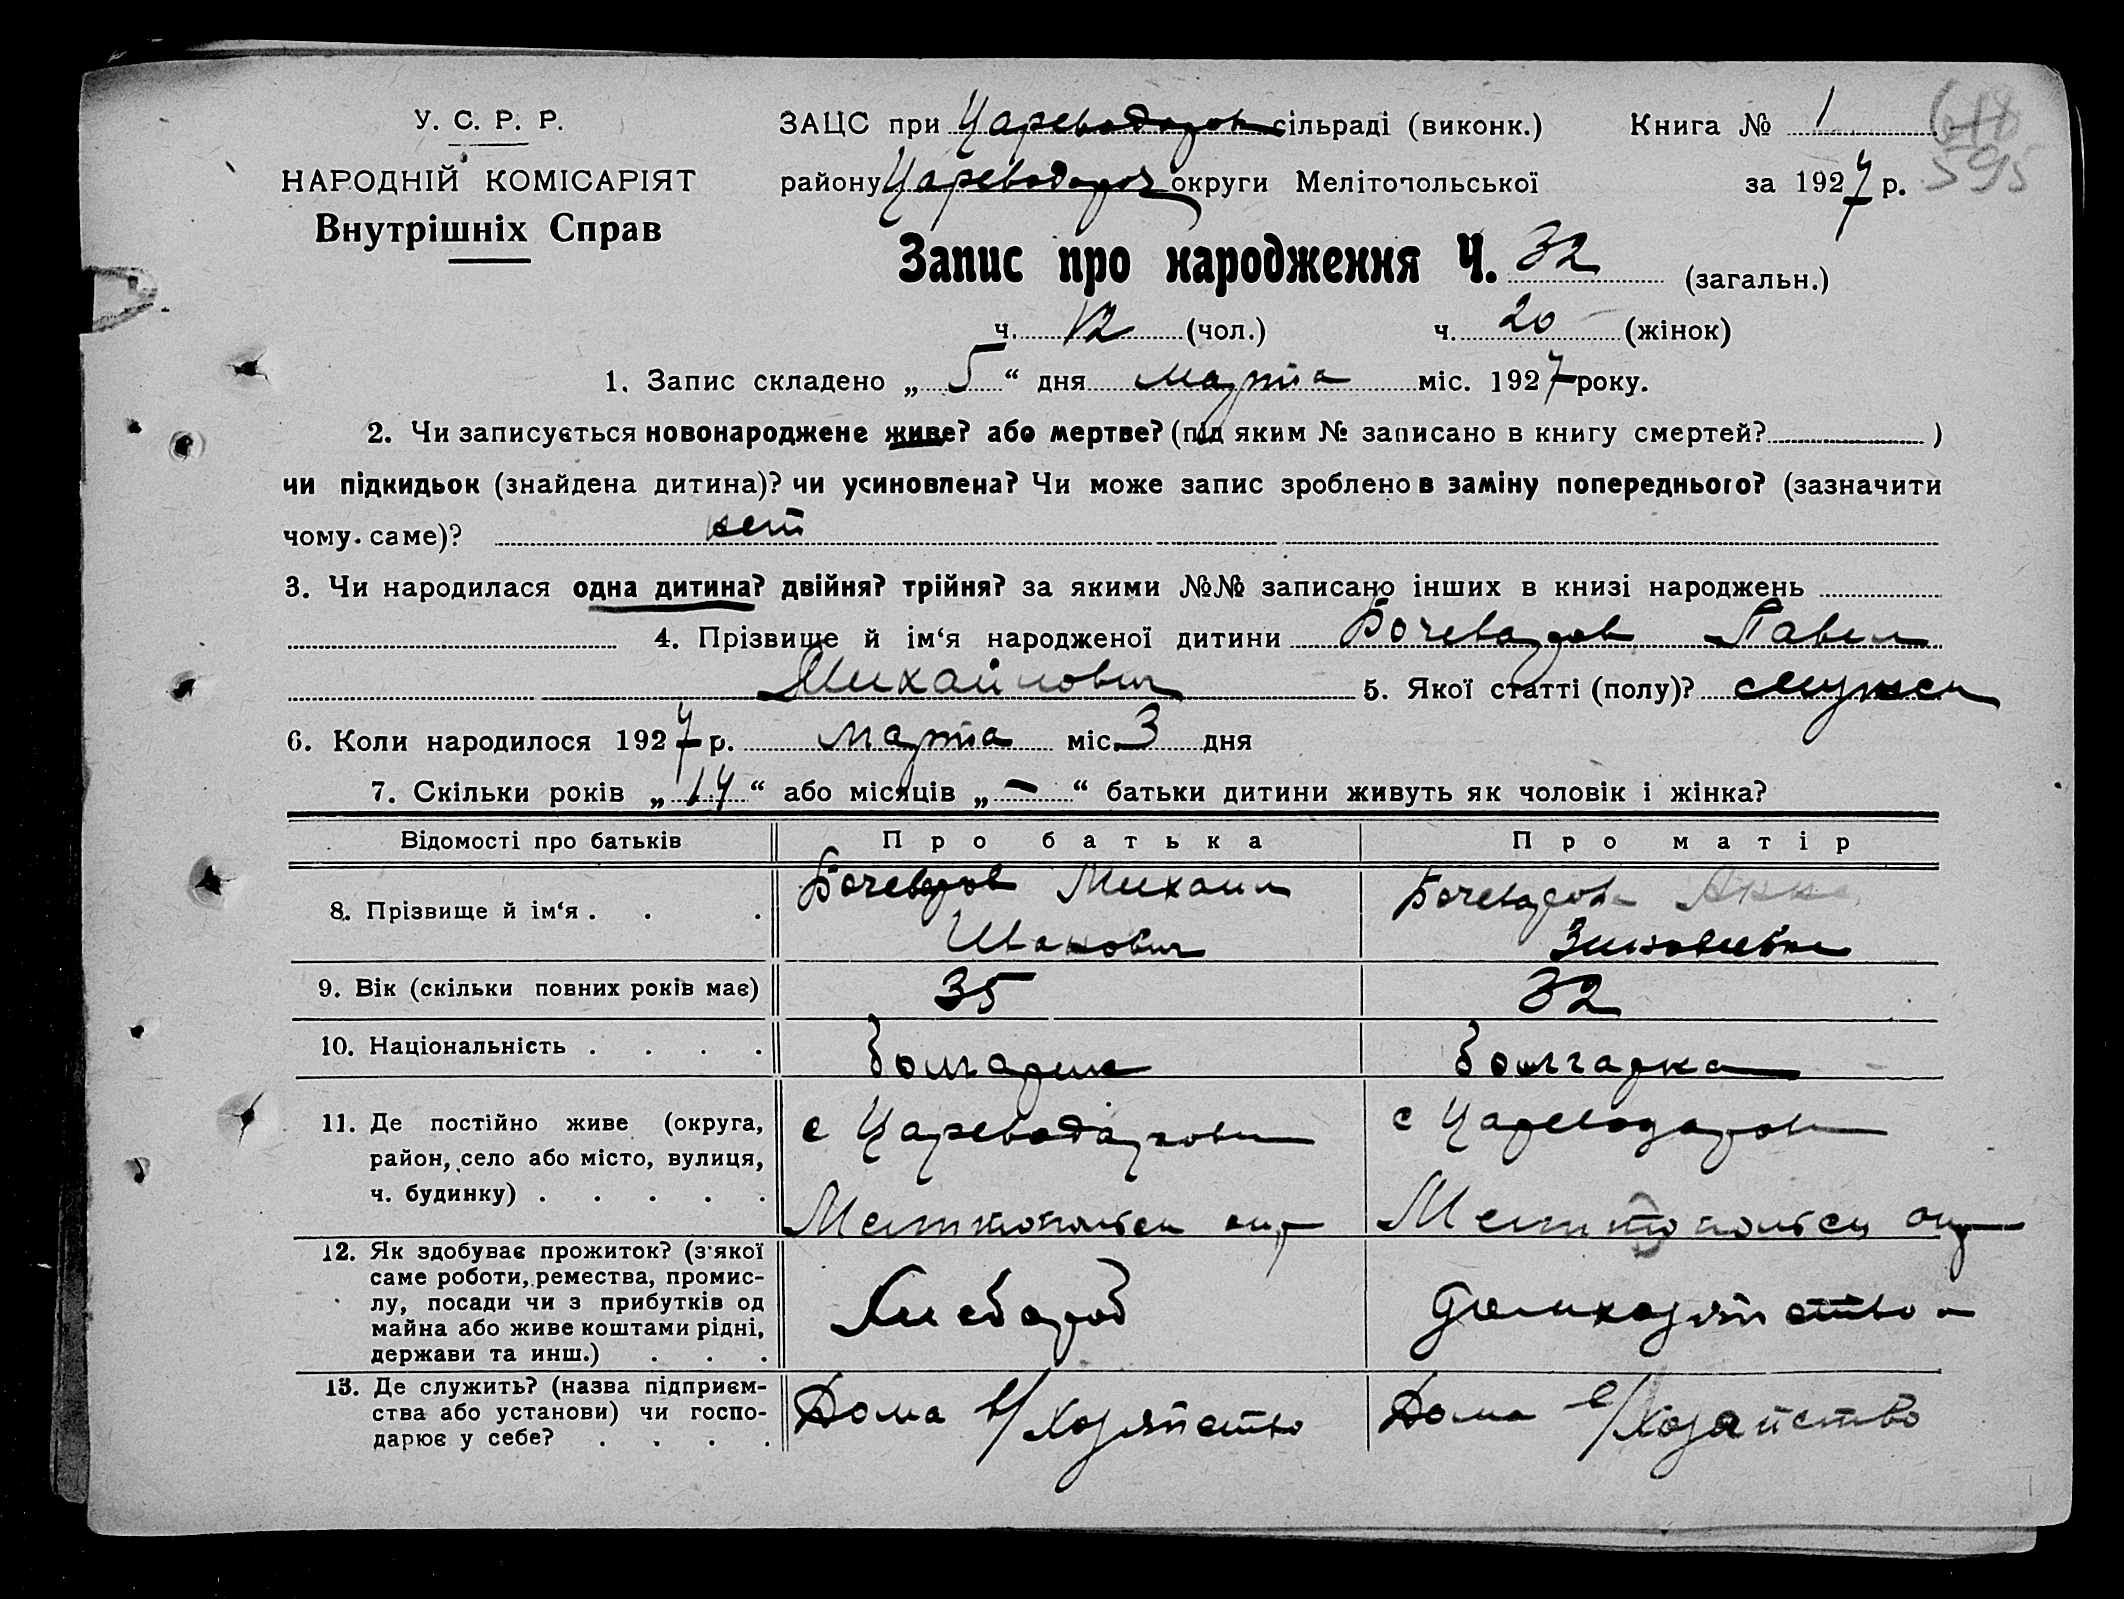 У. С. Р. Р.
НАРОДНІЙ КОМІСАРІЯТ
Внутрішніх Справ
ЗАЦС при Цареводаров сільраді (виконк.) Книга № 1
618
району Цареводаров округи Мелітопольської за 1927 р.
595
Запис про народження Ч. 32 (загальн.)
ч. 12 (чол.) ч. 20 (жінок)
1. Запис складено „ 5 “ дня марта міс. 1927 року.
2. Чи записується новонароджене живе? або мертве? (під яким № записано в книгу смертей? )
чи підкидьок (знайдена дитина)? чи усиновлена? Чи може запис зроблено в заміну попереднього? (зазначити
чому саме)? нет
3. Чи народилася одна дитина? двійня? трійня? за якими №№ записано інших в книзі народжень
4. Прізвище й ім‘я народженої дитини Бочеваров Павел
Михайлович 5. Якої статті (полу)? мужск
6. Коли народилося 1927 р. марта міс. 3 дня
7. Скільки років „ 14 “ або місяців „ – “ батьки дитини живуть як чоловік і жінка?
Відомості про батьків Про батька Про матір
8. Прізвище й ім‘я . . . Бочеваров Михаил Иванович Бочеварова Анна Зиновиевна
9. Вік (скільки повних років має) 35 32
10. Національність . . . . болгарин болгарка
11. Де постійно живе (округа,
район, село або місто, вулиця,
ч. будинку) . . . . .
с Цареводаровки
Мелитопольск окр
с Цареводаровки
Мелитопольск окр
12. Як здобуває прожиток? (з‘якої
саме роботи, ремества, промис-
лу, посади чи з прибутків од
майна або живе коштами рідні,
держави та инш.) . . .
Хлебороб
домхозяйство
13. Де служить? (назва підприєм-
ства або установи) чи госпо-
дарює у себе? . . . .
Дома в/хозяйство
Дома в/хозайство